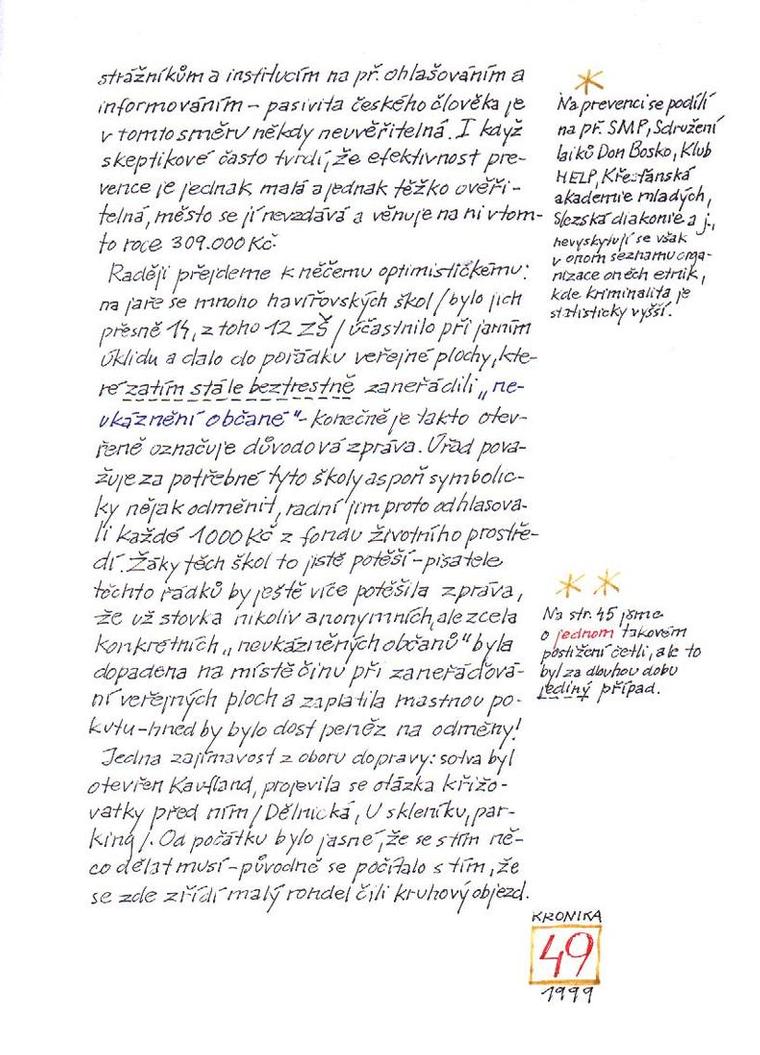 strážníkům a institucím na př. ohlašováním a
informováním – pasivita českého člověka je
v tomto směru někdy neuvěřitelná. I když
skeptikové často tvrdí, že efektivnost pre-
vence je jednak malá a jednak těžko ověři-
telná, město se jí nevzdává a věnuje na ni v tom-
to roce 309.000 Kč.
Raději přejdeme k něčemu optimističkému:
na jaře se mnoho havířovských škol /bylo jich
přesně 14, z toho 12 ZŠ/ účastnilo při jarním
úklidu a dalo do pořádku veřejné plochy, kte-
ré zatím stále beztrestně zaneřádili „ne-
ukáznění občané“ – konečně je takto otev-
řeně označuje důvodová zpráva. Úřad pova-
žuje za potřebné tyto školy aspoň symbolic-
ky nějak odměnit, radní jim proto odhlasova-
li každé 1000 Kč z fondu životního prostře-
dí. Žáky těch škol to jistě potěší – pisatele
těchto řádků by ještě více potěšila zpráva,
že už stovka nikoliv anonymních, ale zcela
konkrétních „neukázněných občanů“ byla
dopadena na místě činu při zaneřáďová-
ní veřejných ploch a zaplatila mastnou po-
kutu – hned by bylo dost peněz na odměny!
Jedna zajímavost z oboru dopravy: sotva byl
otevřen Kaufland, projevila se otázka křižo-
vatky před ním /Dělnická, U skleníku, par-
king/. Od počátku bylo jasné, že se s tím ně-
co dělat musí – původně se počítalo s tím, že
se zde zřídí malý rondel čili kruhový objezd.
*
Na prevenci se podílí
na př. SMP, Sdružení
laiků Don Bosko, Klub
HELP, Křesťanská
akademie mladých,
Slezská diakonie a j.,
nevyskytují se však
v onom seznamu orga-
nizace oněch etnik,
kde kriminalita je
statisticky vyšší.
* *
Na str. 45 jsme
o jednom takovém
postižení četli, ale to
byl za dlouhou dobu
jediný případ.
KRONIKA
49
1999